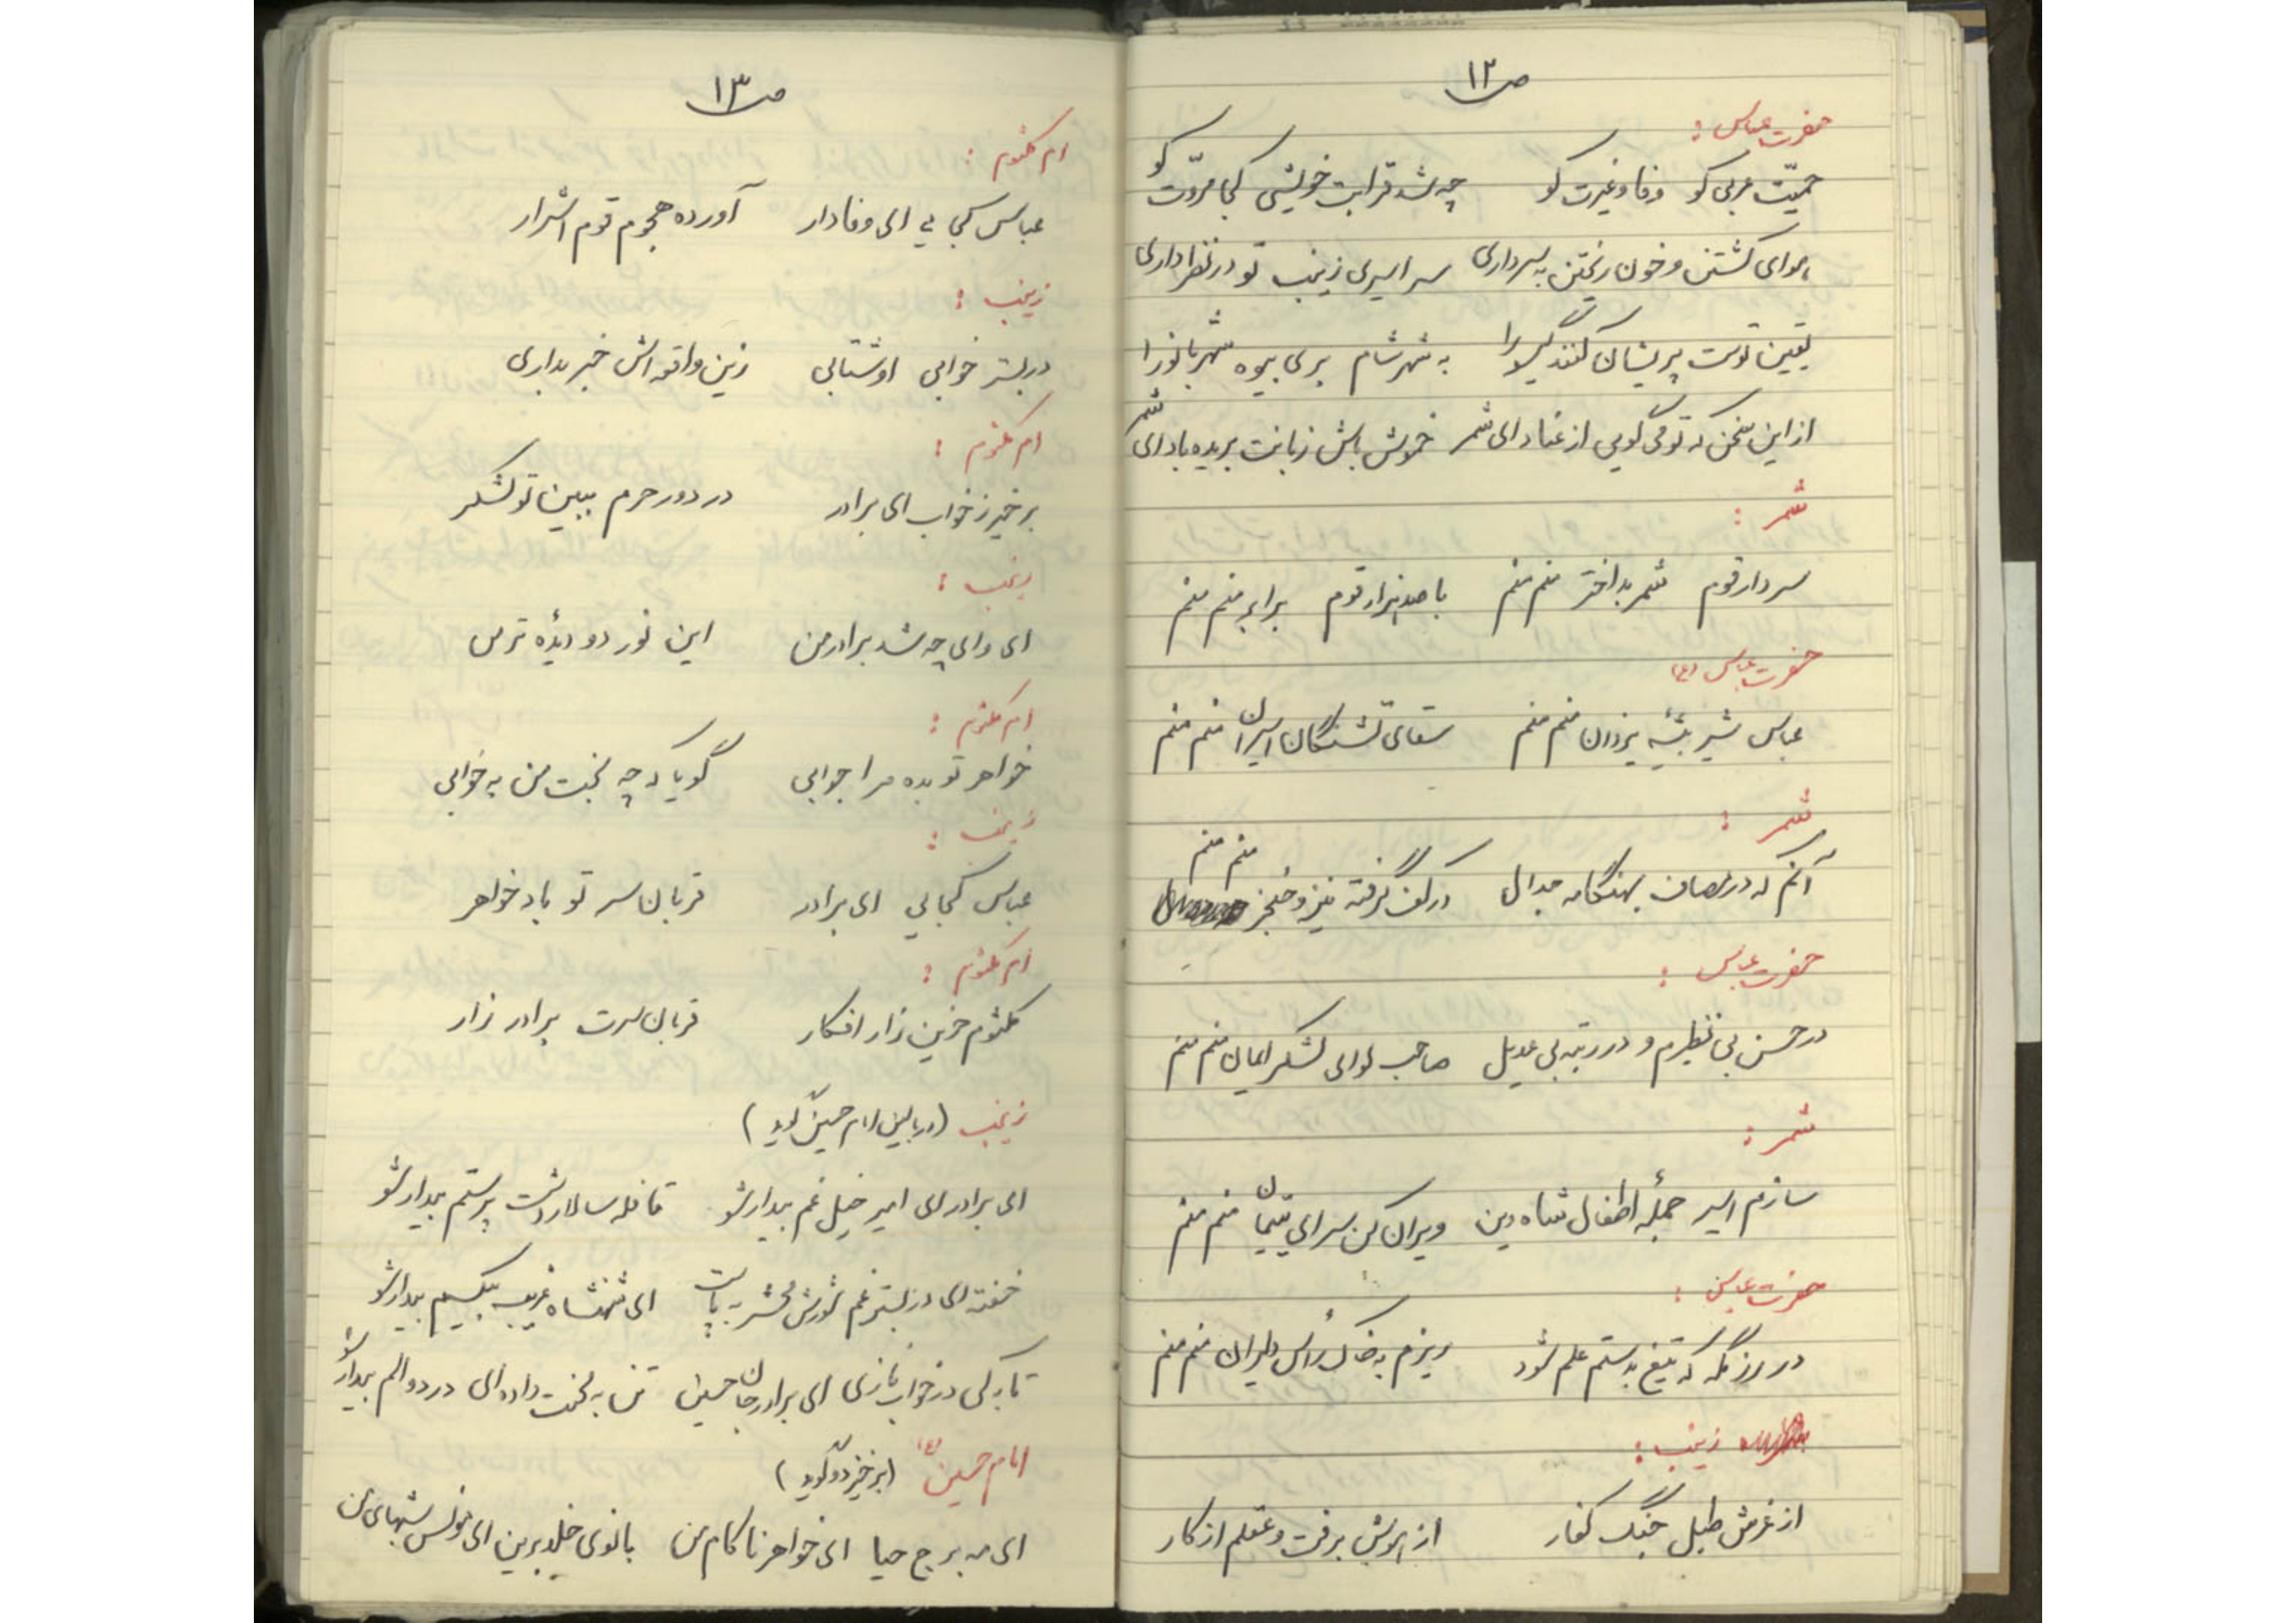 ص ۱۲
حضرت عباس :
حمیّت عربی کو وفا و غیرت کو چه شد قرابت خویشی کجا مروّت کو
هوای کشتن و خون ریختن به سر داری سر اسیری زینب تو در نظر داری
یقین توست پریشان کنند گیسو را به شهر شام بری بیوه شهربانو را
از این سخن که تو می گویی از عناد ای شمر خموش باش زبانت بریده باد ای شمر
شمر :
سردار قوم شمر بداختر منم منم با صد هزار قوم برابر منم منم
حضرت عباس (ع)
عباس شیر بیشهٔ یزدان منم منم سقای تشنگان اسیران منم منم
شمر :
آنم که در مصاف بهنگامه جدال در کف گرفته نیزه و خنجر منم منم
حضرت عباس :
در حسن بی نظیرم و در رتبه بی عدیل صاحب لوای لشکر ایمان منم منم
شمر :
سازم اسیر جملهٔ اطفال شاه دین ویران کن سرای یتیمان منم منم
حضرت عباس :
در رزمگه که تیغ به دستم علم شود ریزم به خاک رأس دلیران منم منم
زینب :
از غرش طبل جنگ کفار از هوش برفت و عقلم از کار
ص ۱۳
ام کلثوم :
عباس کجایی ای وفادار آورده هجوم قوم اشرار
زینب :
در بستر خوابی او شتابی زین واقعه اش خبر نداری
ام کلثوم :
برخیز ز خواب ای برادر در دور حرم ببین تو لشکر
زینب :
ای وای چه شد برادر من این نور دو دیدهٔ تر من
ام کلثوم :
خواهر تو بده مرا جوابی گویا که چه بخت من به خوابی
زینب :
عباس کجایی ای برادر قربان سر تو باد خواهر
ام کلثوم :
کلثوم حزین زار افکار قربان سرت برادر زار
زینب (در بالین امام حسین گوید)
ای برادر ای امیر خیل غم بیدار شو قافله سالار دشت پر ستم بیدار شو
خفته ای در بستر غم شورش محشر بپاست ای شهنشاه غریب بیکسم بیدار شو
تا به کی در خواب نازی ای برادر جان حسین تن به لخت داده ای در دو الم بیدار شو
امام حسین (ع) (برخیزد و گوید)
ای مه برج حیا ای خواهر ناکام من بانوی خلد برین ای مونس شبهای من